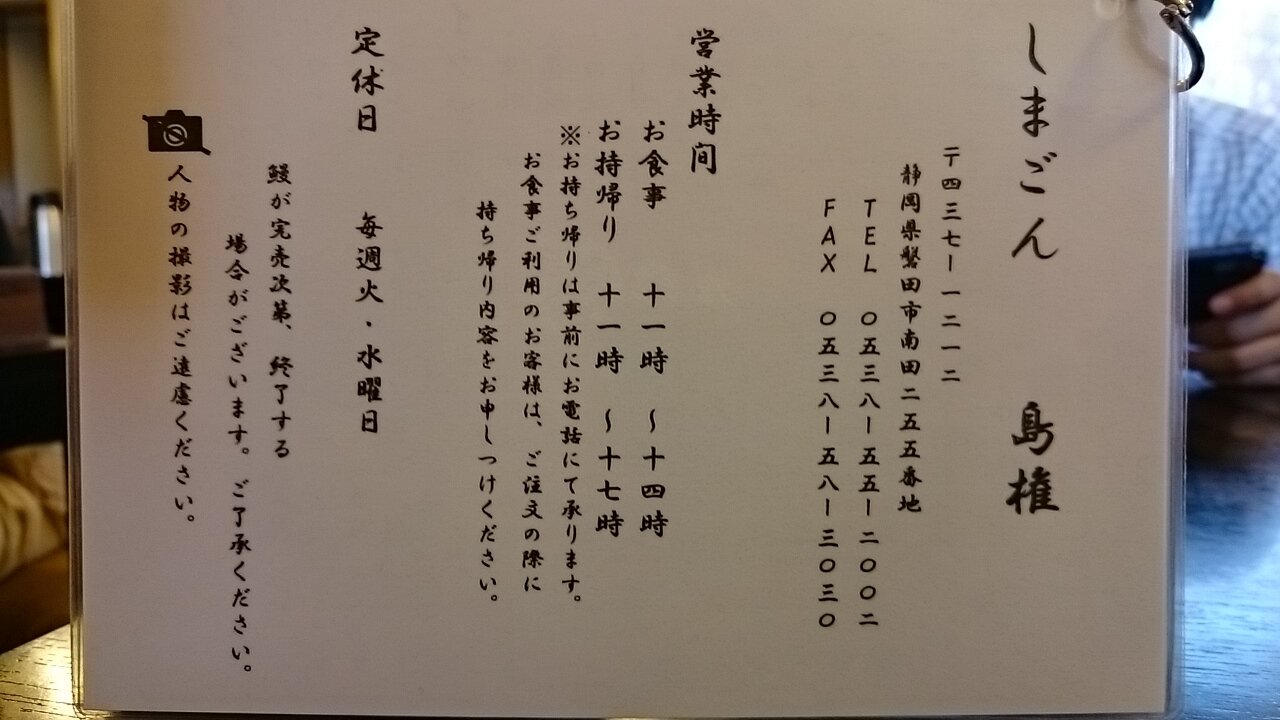 しまごん 島権
〒四三七ー一二一二
静岡県磐田市南田二五五番地
TEL 〇五三八ー五五ー二〇〇二
FAX 〇五三八ー五八ー三〇三〇
営業時間
お食事 十一時 〜十四時
お持帰り 十一時 〜十七時
※お持ち帰りは事前にお電話にて承ります。
お食事ご利用のお客様は、ご注文の際に
持ち帰り内容をお申しつけください。
定休日 毎週火・水曜日
鰻が完売次第、終了する
場合がございます。ご了承ください。
人物の撮影はご遠慮ください。